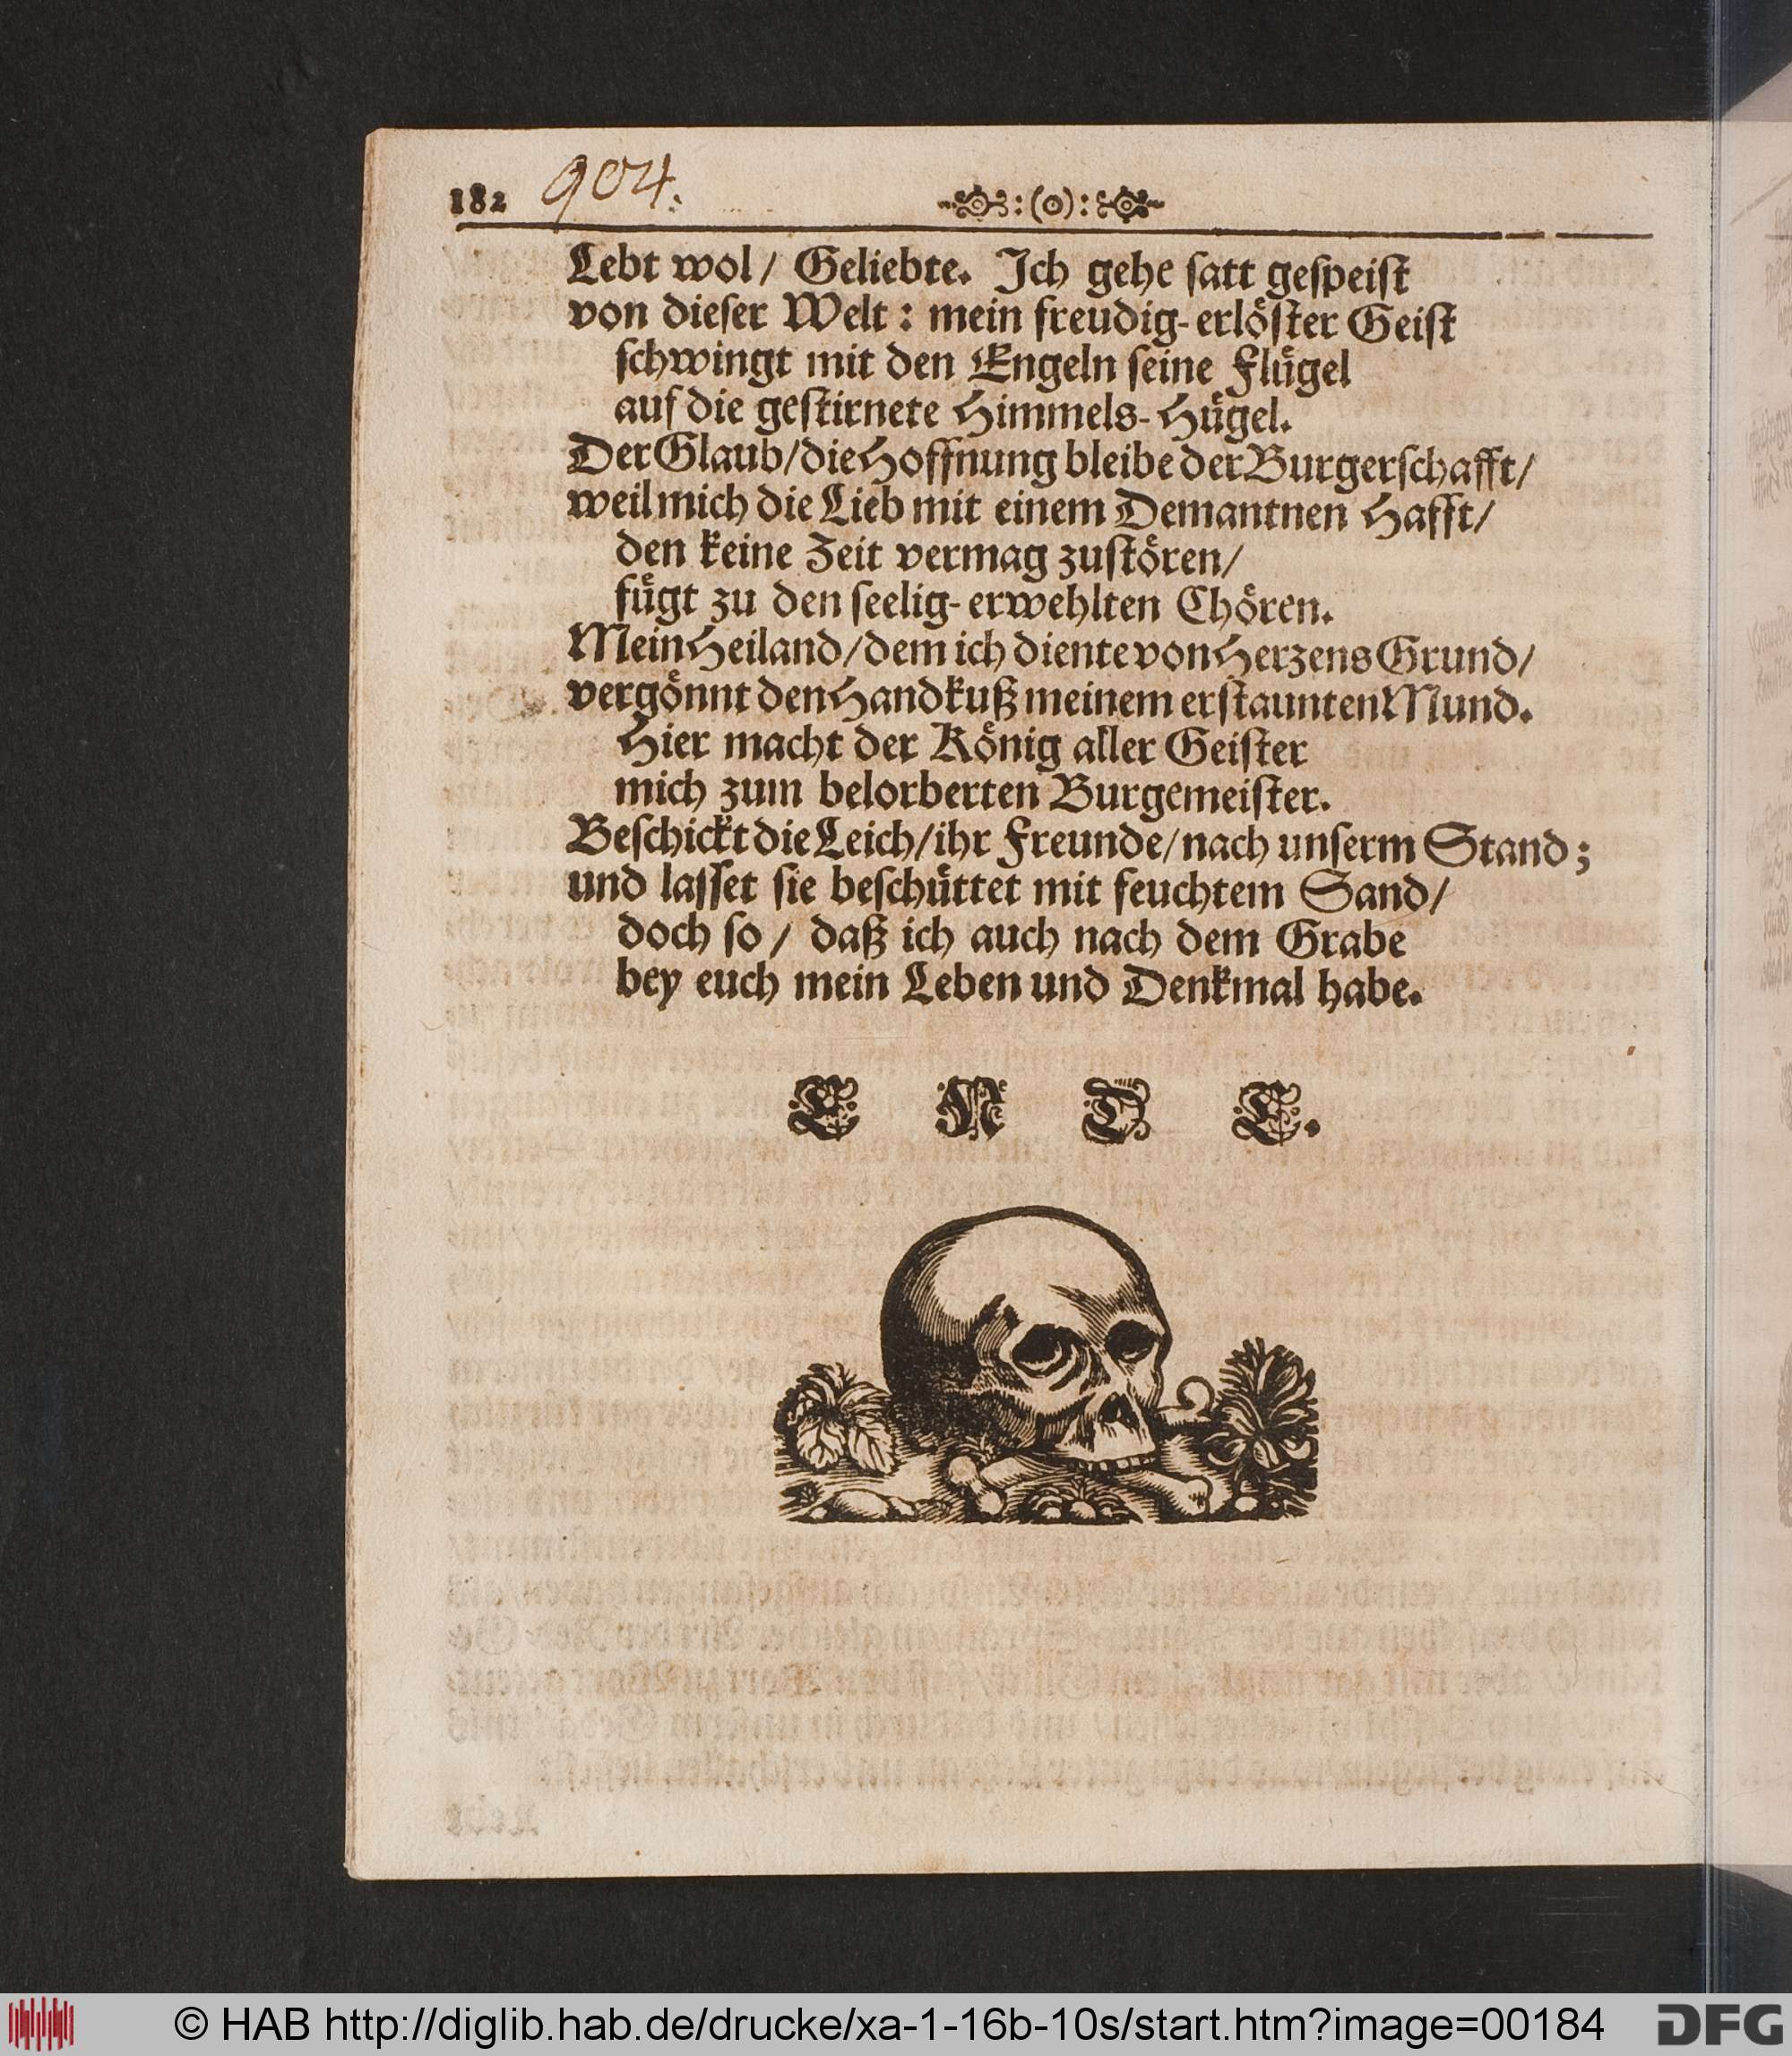 182 904.
:(o):
Lebt wol/ Geliebte. Ich gehe ſatt geſpeiſt
von dieſer Welt: mein freudig-erloͤſter Geiſt
ſchwingt mit den Engeln ſeine Fluͤgel
auf die geſtirnete Himmels-Huͤgel.
Der Glaub/die Hoffnung bleibe der Burgerſchafft/
weil mich die Lieb mit einem Demantnen Hafft/
den keine Zeit vermag zuſtoͤren/
fuͤgt zu den ſeelig-erwehlten Choͤren.
Mein Heiland/dem ich diente von Herzens Grund/
vergoͤnnt den Handkuß meinem erſtaunten Mund.
Hier macht der Koͤnig aller Geiſter
mich zum belorberten Burgemeiſter.
Beſchickt die Leich/ihr Freunde/nach unſerm Stand;
und laſſet ſie beſchuͤttet mit feuchtem Sand/
doch ſo/ daß ich auch nach dem Grabe
bey euch mein Leben und Denkmal habe.
E N D E.
© HAB http://diglib.hab.de/drucke/xa-1-16b-10s/start.htm?image=00184 DFG